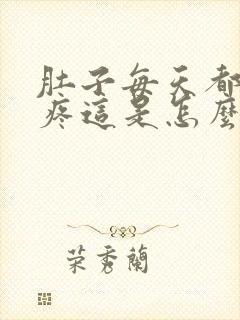 肚子每天都
疼這是怎麼
荣秀蘭